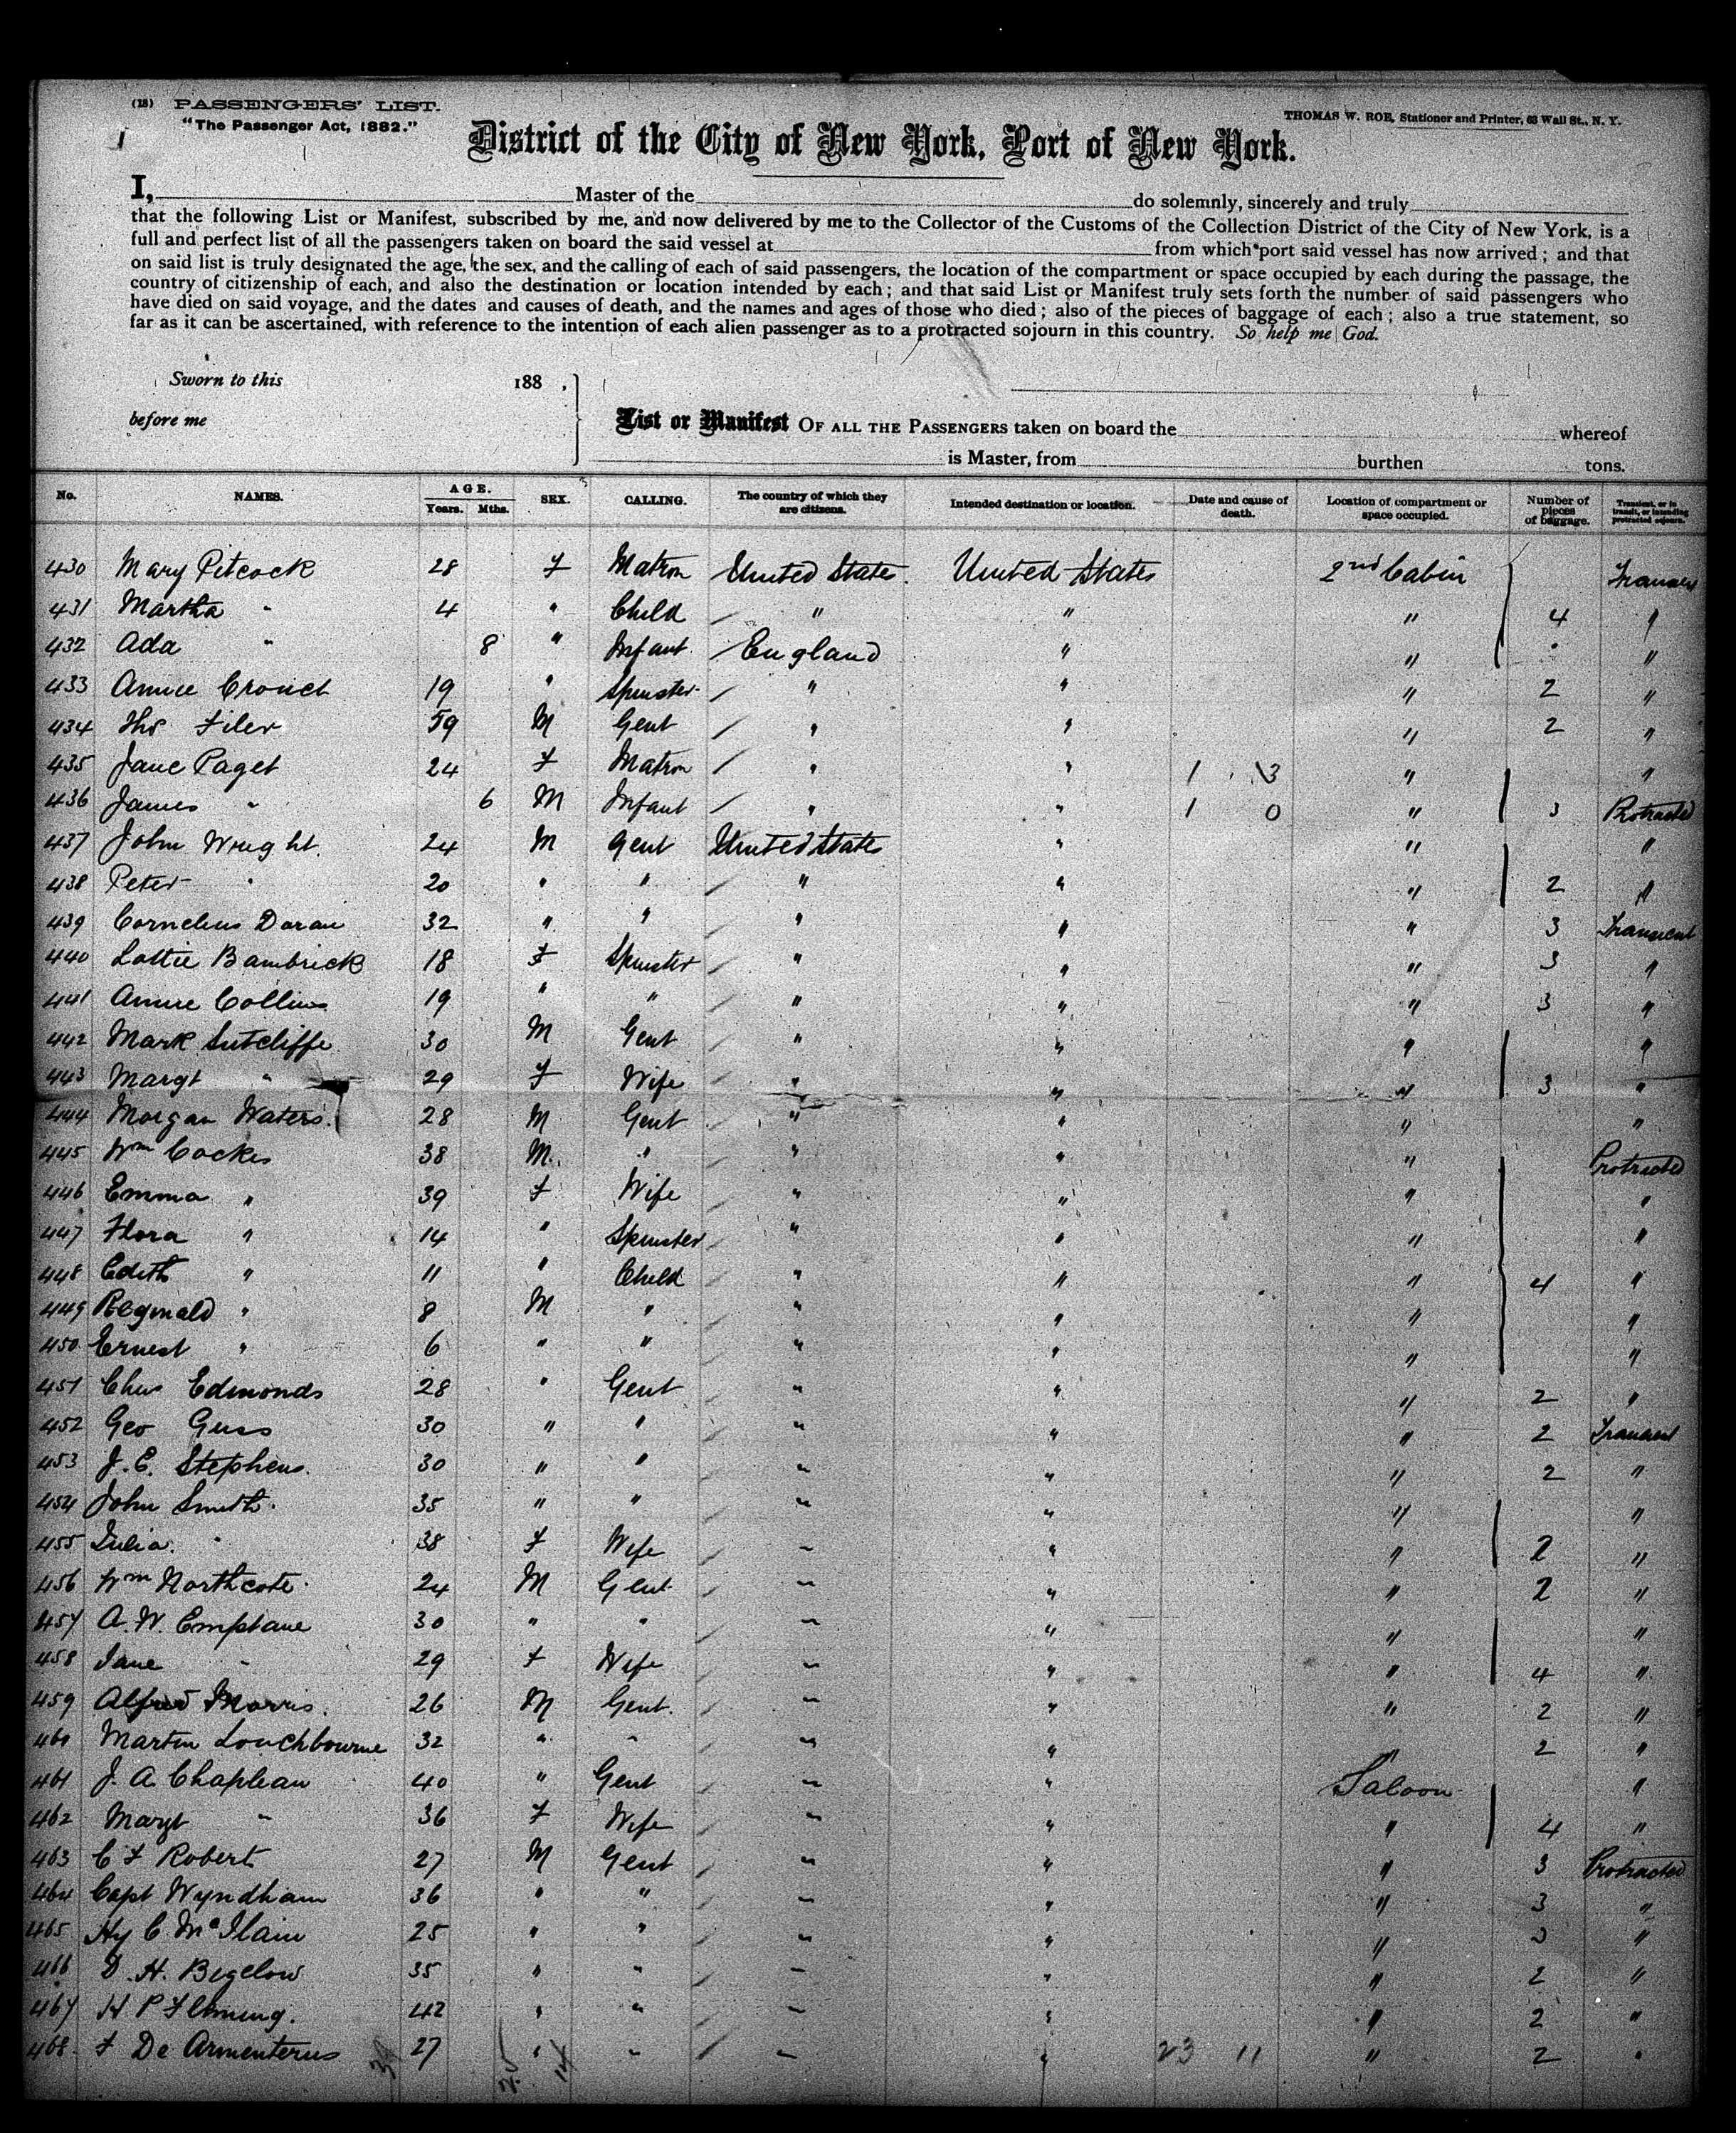 (18) PASSENGERS' LIST.
"The Passenger Act, 1882."
THOMAS W. ROE, Stationer and Printer, 63 Wall St., N. Y.
1
District of the City of New York, Port of New York.
I, Master of the do solemnly, sincerely and truly
that the following List or Manifest, subscribed by me, and now delivered by me to the Collector of the Customs of the Collection District of the City of New York, is a
full and perfect list of all the passengers taken on board the said vessel at from which port said vessel has now arrived; and that
on said list is truly designated the age, the sex, and the calling of each of said passengers, the location of the compartment or space occupied by each during the passage, the
country of citizenship of each, and also the destination or location intended by each; and that said List or Manifest truly sets forth the number of said passengers who
have died on said voyage, and the dates and causes of death, and the names and ages of those who died; also of the pieces of baggage of each; also a true statement, so
far as it can be ascertained, with reference to the intention of each alien passenger as to a protracted sojourn in this country. So help me God.
Sworn to this 188 ,
before me
List or Manifest OF ALL THE PASSENGERS taken on board the whereof
is Master, from burthen tons.
No. NAMES. AGE. Years. Mths. SEX. CALLING. The country of which they are citizens. Intended destination or location. Date and cause of death. Location of compartment or space occupied. Number of pieces of baggage. Transient, or in transit, or intending protracted sojourn.
430 Mary Pitcock 28 F Matron United States United States 2nd Cabin Transient
431 Martha " 4 " Child " " " 4 "
432 Ada " 8 " Infant England " " "
433 Annie Crouch 19 " Spinster " " " 2 "
434 Thos Filer 59 M Gent " " " 2 "
435 Jane Paget 24 F Matron " " 1 13 " "
436 James " 6 M Infant " " 1 0 " 3 Protracted
437 John Wright 24 M Gent United States " " "
438 Peter " 20 " " " " " 2 "
439 Cornelius Doran 32 " " " " " 3 Transient
440 Lottie Bambrick 18 F Spinster " " " 3 "
441 Annie Collins 19 " " " " " 3 "
442 Mark Sutcliffe 30 M Gent " " " "
443 Margt " 29 F Wife " " " 3 "
444 Morgan Waters 28 M Gent " " " "
445 Wm Cockes 38 M " " " " Protracted
446 Emma " 39 F Wife " " " "
447 Flora " 14 " Spinster " " " "
448 Edith " 11 " Child " " " 4 "
449 Reginald " 8 M " " " " "
450 Ernest " 6 " " " " " "
451 Chas Edmonds 28 " Gent " " " 2 "
452 Geo Guss 30 " " " " " 2 Transient
453 J. E. Stephens 30 " " " " " 2 "
454 John Smith 35 " " " " " "
455 Julia " 38 F Wife " " " 2 "
456 Wm Northcote 24 M Gent " " " 2 "
457 A. W. Emptane 30 " " " " " "
458 Jane " 29 F Wife " " " 4 "
459 Alfred Morris 26 M Gent " " " 2 "
460 Martin Louchbourne 32 " " " " " 2 "
461 J. A. Chapleau 40 " Gent " " Saloon "
462 Margt " 36 F Wife " " " 4 "
463 C F Robert 27 M Gent " " " 3 Protracted
464 Capt Wyndham 36 " " " " " 3 "
465 Hy C. McIlain 25 " " " " " 3 "
466 D. H. Bigelow 35 " " " " " 2 "
467 H P Fleming 42 " " " " " 2 "
468 F De Armenterus 27 " " " " 23 11 " 2 "